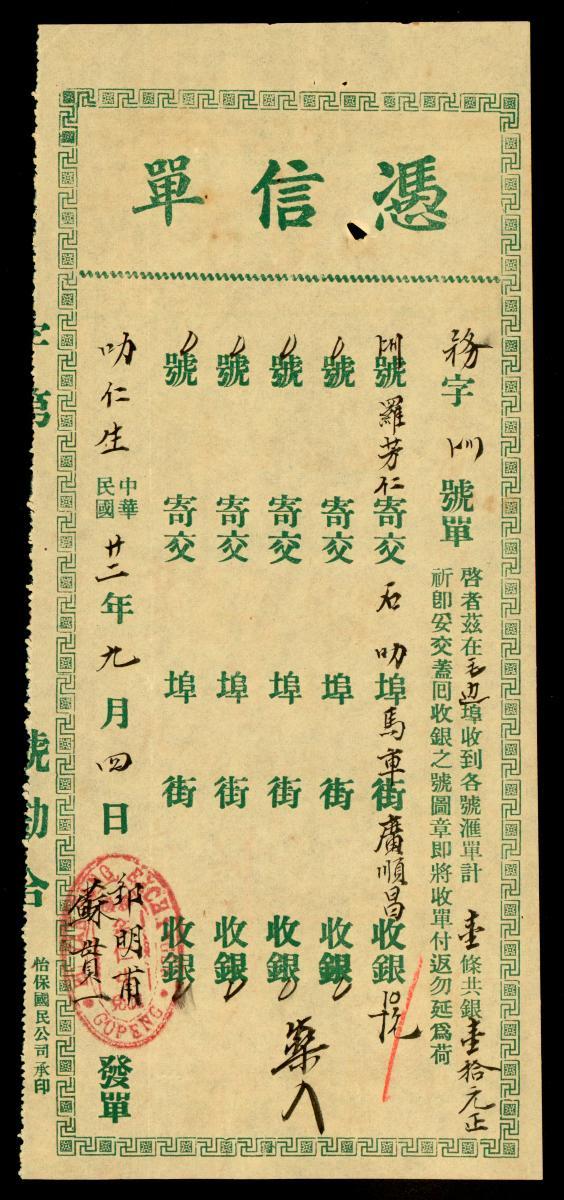 憑信單
務字 號單
啓者茲在毛邊埠收到各號滙單計壹條共銀壹拾元正
祈即妥交蓋回收銀之號圖章即將收單付返勿延爲荷
號羅芳仁寄交石叻埠馬車街廣順昌收銀
號 寄交 埠 街 收銀
號 寄交 埠 街 收銀
號 寄交 埠 街 收銀
號 寄交 埠 街 收銀
叻仁生
中華民國廿二年九月四日
蘇 發單
GOPENG
字第 號勘合
怡保國民公司承印